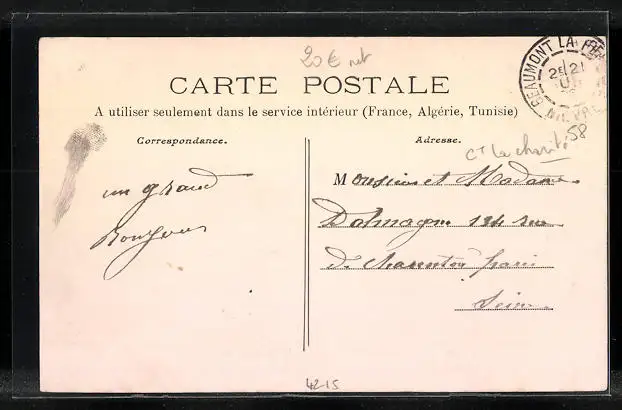 20 € net
CARTE POSTALE
BEAUMONT LA FER
NIEVRE
2E 21
A utiliser seulement dans le service intérieur (France, Algérie, Tunisie)
Correspondance.
Adresse.
Ct La charité
58
un grand
Bonjour
Monsieur et Madame
Dalmagne 194 rue
de Charenton paris
Seine
42-15